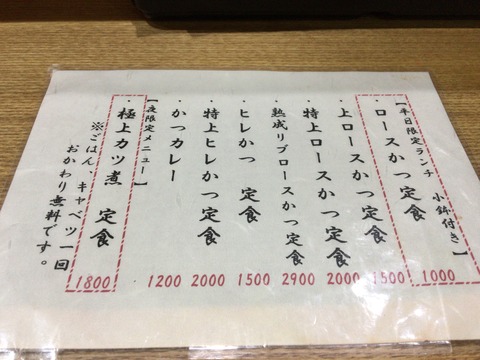 【平日限定ランチ 小鉢付き】
・ロースかつ定食 1000
・上ロースかつ定食 1500
・特上ロースかつ定食 2000
・熟成リブロースかつ定食 2900
・ヒレかつ 定食 1500
・特上ヒレかつ定食 2000
・かつカレー 1200
【夜限定メニュー】
・極上カツ煮 定食 1800
※ごはん、キャベツ一回
おかわり無料です。